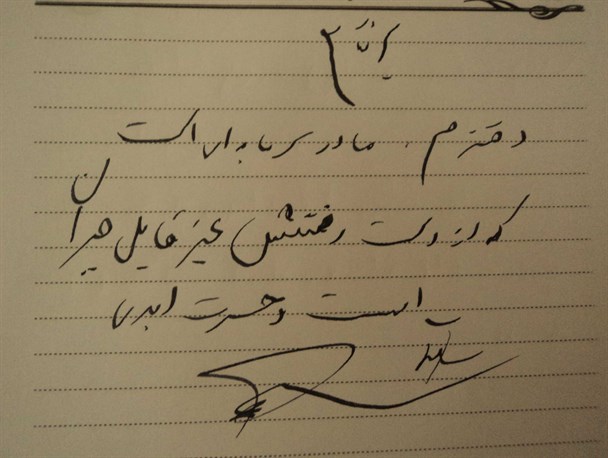 دخترم، مادر سرمایه‌ای است
که از دست رفتنش غیر قابل جبران
است و حسرت ابدی